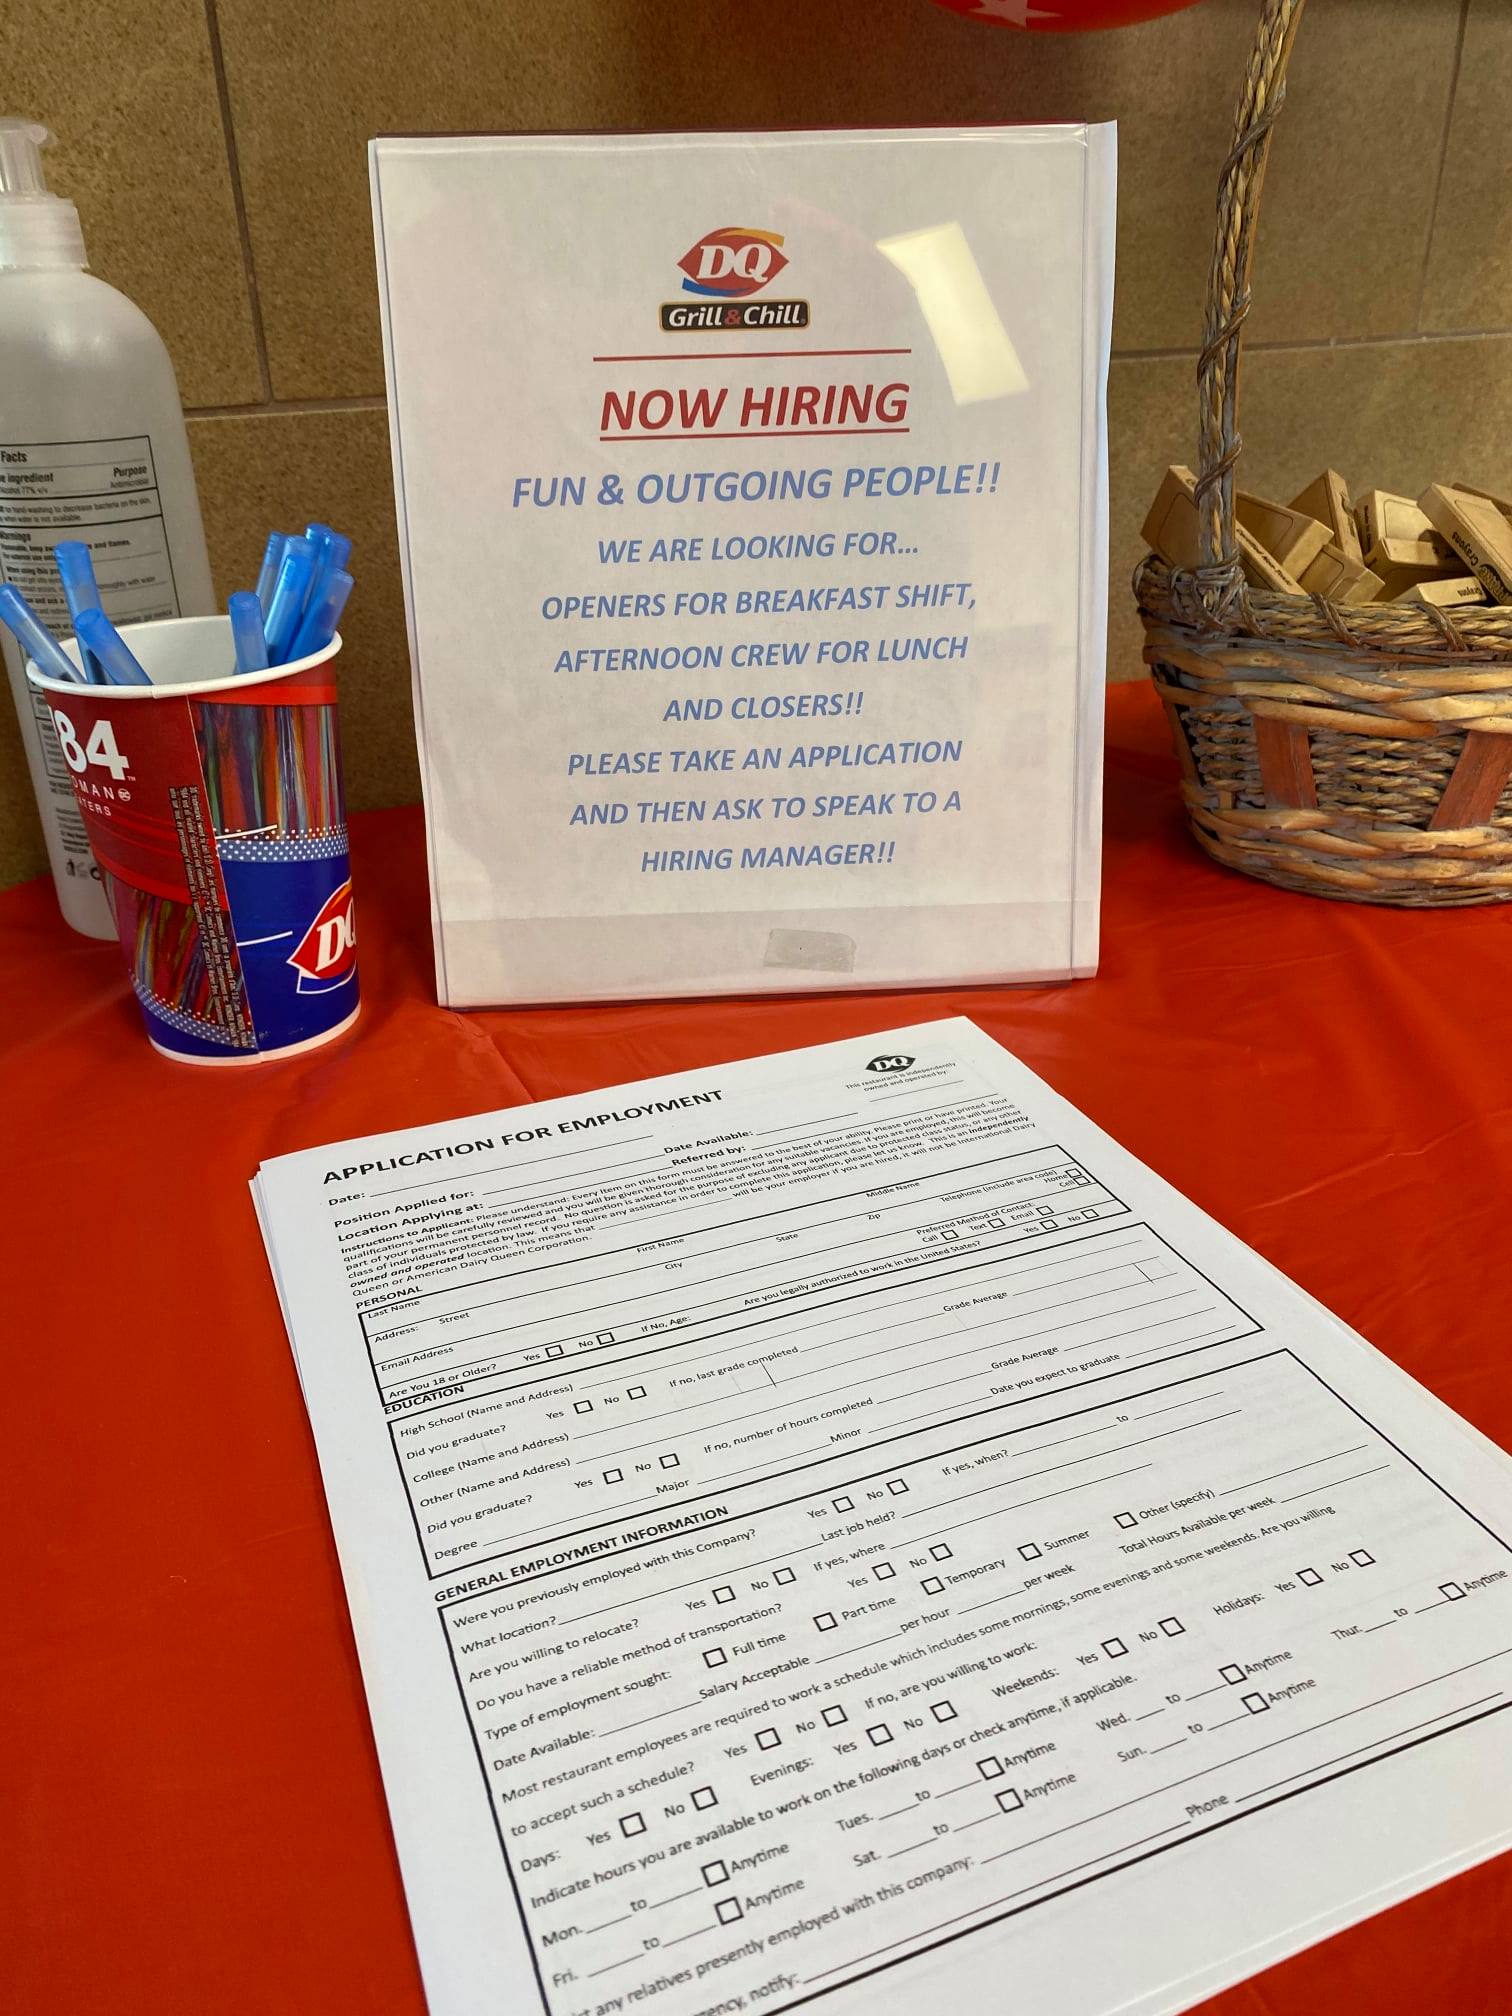 DQ
Grill & Chill
NOW HIRING
FUN & OUTGOING PEOPLE!!
WE ARE LOOKING FOR...
OPENERS FOR BREAKFAST SHIFT,
AFTERNOON CREW FOR LUNCH
AND CLOSERS!!
PLEASE TAKE AN APPLICATION
AND THEN ASK TO SPEAK TO A
HIRING MANAGER!!
Facts
Purpose
Warnings
84
DQ
Crayons
DQ
This restaurant is independently
owned and operated by:
APPLICATION FOR EMPLOYMENT
Date: Date Available:
Position Applied for: Referred by:
Location Applying at:
Instructions to Applicant: Please understand: Every item on this form must be answered to the best of your ability. Please print or have printed. Your
qualifications will be carefully reviewed and you will be given thorough consideration for any suitable vacancies. If you are employed, this will become
part of your permanent personnel record. No question is asked for the purpose of excluding any applicant due to protected class status, or any other
class of individuals protected by law. If you require any assistance in order to complete this application, please let us know. This is an independently
owned and operated location. This means that will be your employer if you are hired, it will not be International Dairy
Queen or American Dairy Queen Corporation.
PERSONAL
Last Name First Name Middle Name Telephone (include area code) Home Cell
Address: Street City State Zip
Email Address Preferred Method of Contact: Call Text Email
Are You 18 or Older? Yes No If No, Age: Are you legally authorized to work in the United States? Yes No
EDUCATION
High School (Name and Address) Grade Average
Did you graduate? Yes No If no, last grade completed
College (Name and Address)
Other (Name and Address) Grade Average
Did you graduate? Yes No If no, number of hours completed Date you expect to graduate
Degree Major Minor
GENERAL EMPLOYMENT INFORMATION
Were you previously employed with this Company? Yes No If yes, when? to
What location? Last job held?
Are you willing to relocate? Yes No If yes, where
Do you have a reliable method of transportation? Yes No
Type of employment sought: Full time Part time Temporary Summer Other (specify)
Date Available: Salary Acceptable per hour per week Total Hours Available per week
Most restaurant employees are required to work a schedule which includes some mornings, some evenings and some weekends. Are you willing
to accept such a schedule? Yes No If no, are you willing to work:
Days: Yes No Evenings: Yes No Weekends: Yes No Holidays: Yes No
Indicate hours you are available to work on the following days or check anytime, if applicable.
Mon. to Anytime Tues. to Anytime Wed. to Anytime Thur. to Anytime
Fri. to Anytime Sat. to Anytime Sun. to Anytime
any relatives presently employed with this company:
notify: Phone